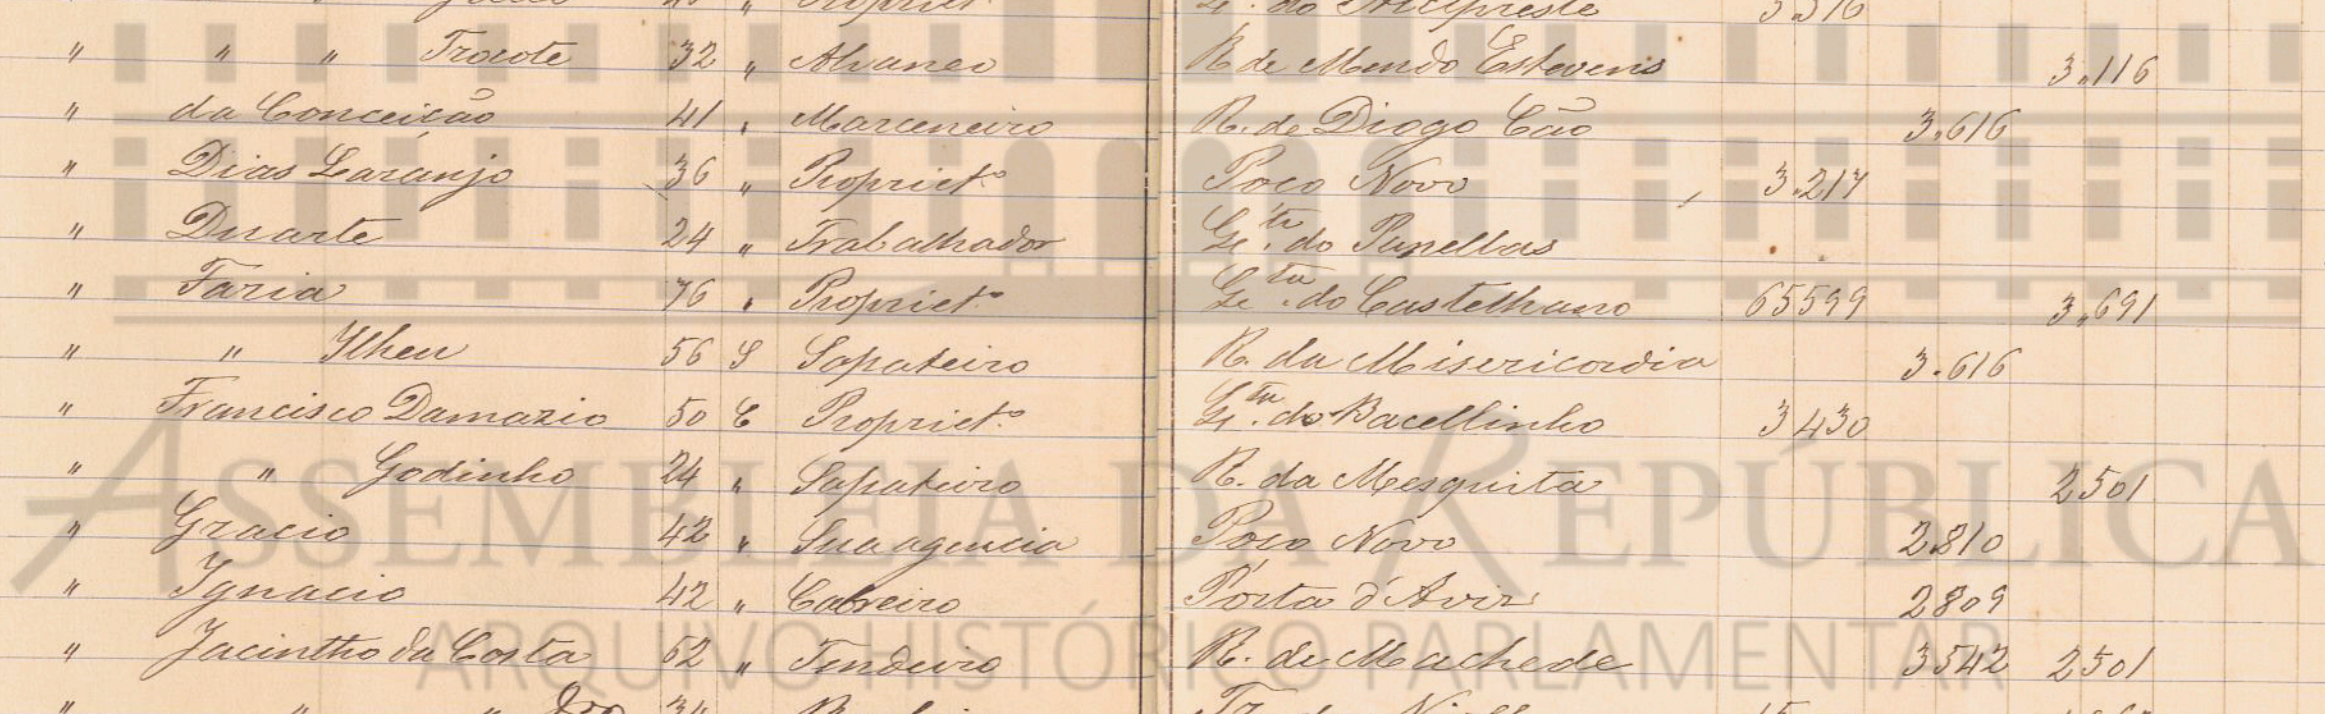 " " " Trocote 32 " Alvaneo R. de Mendo Estevens 3.116
" da Conceição 41 " Marceneiro R. de Diogo Cão 3.616
" Dias Laranjo 36 " Propriet.º Poço Novo 3.217
" Duarte 24 " Trabalhador do Panellas
" Faria 76 " Propriet.º do Castelhano 65599 3.691
" " Ilheu 56 S Sapateiro R. da Misericordia 3.616
" Francisco Damazio 50 C Propriet.º do Bacellinho 3430
" " Godinho 24 " Sapateiro R. da Mesquita 2501
" Gracio 42 " Sua agencia Poço Novo 2810
" Ignacio 42 " Cabreiro Porta d'Aviz 2809
" Jacintho da Costa 52 " Tendeiro R. de Machede 3542 2501
ASSEMBLEIA DA REPÚBLICA
ARQUIVO HISTÓRICO PARLAMENTAR